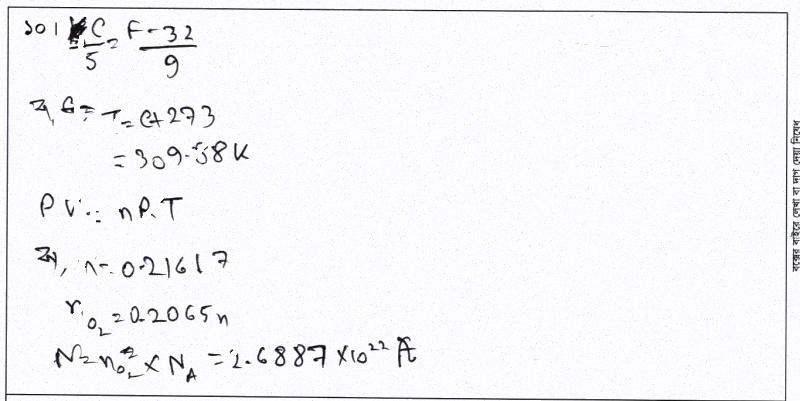 ১০। C/5 = F-32/9
বা, T = C+273
= 309.58K
PV = nRT
বা, n = 0.21617
n_O₂ = 0.2065n
N = n_O₂ × N_A = 2.6887 × 10²² টি
বক্সের বাইরে লেখা বা দাগ দেয়া নিষেধ